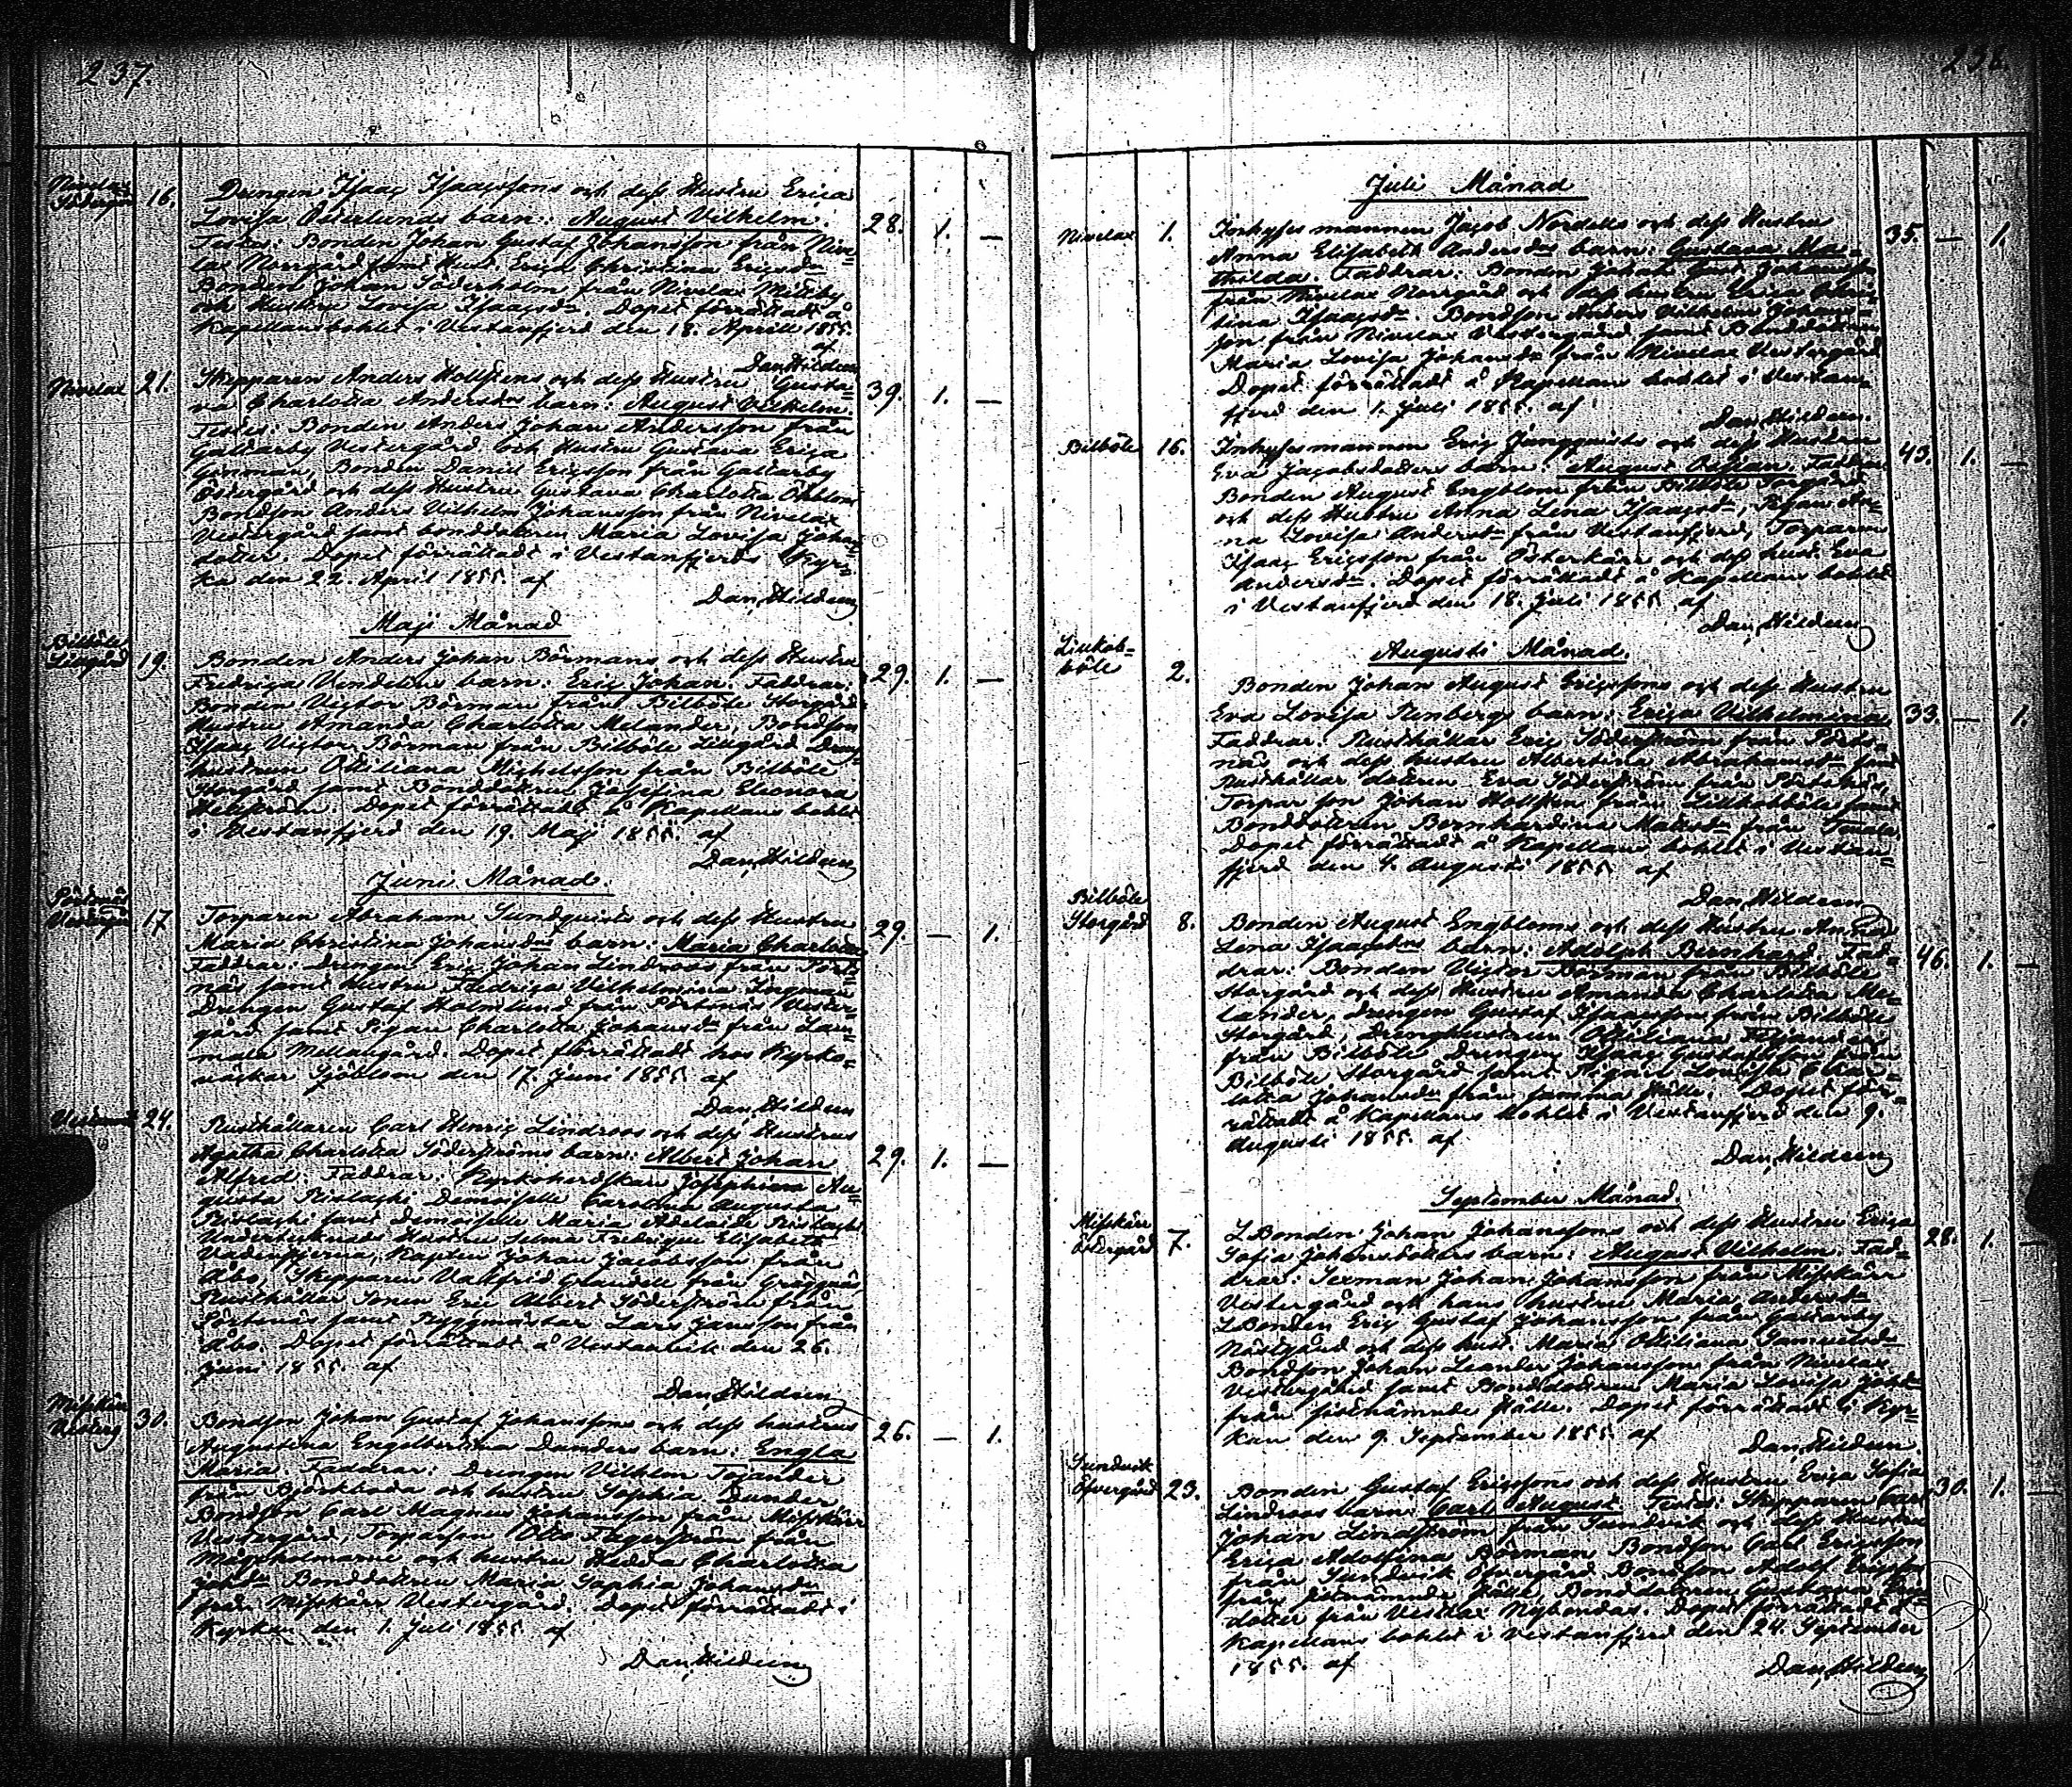 237.
Nivelax Södergård 16. Drengen Isaac Isaacssons och dess Hustru Erica
Lovisa Österlunds barn: August Vilhelm. 28. 1. —
Testes: Bonden Johan Gustaf Johansson från Nive=
lax Norrgård samt Hust. Erica Christina Ericsdr
Bonden Johan Söderholm från Nivelax
och Hustru Lovisa Isaacsdr. Dopet förrättadt å
Kapellansbohlet i Vestanfjerd den 18. Aprill 1855.
af
Dan. Hildeen
Nivelax 21. Skepparen Anders Hollstens och dess Hustru Gusta=
va Charlotta Andersdrs barn: August Vilhelm. 39. 1. —
Testes: Bonden Anders Johan Andersson från
Galtarby Vestergård och Hustru Gustava Erica
Ginman, Bonden Daniel Ericsson från Galtarby
Östergård och dess Hustru Gustava Charlotta Öhblom
Bondson Anders Vilhelm Johansson från Nivelax
Vestergård samt bonddottren Maria Lovisa Johans
dotter. Dopet förrättadt i Vestanfjerds Kyr=
ka den 22. April 1855. af
Dan. Hildeen
Maji Månad
Bilböle Lillgård 19. Bonden Anders Johan Börmans och dess Hustru
Fredrica barn: Eric Johan. Faddrar: 29. 1. —
Bonden Victor Börman från Bilböle Storgård
Hustru Amanda Charlotta Melander, Bondson
Isaac Victor Börman från Bilböle Lillgård Dreng
hustrun Ottiliana Michelsson från Bilböle
Storgård samt Bonddottren Josefina Eleonora
Dopet förrättadt å Kapellans bohlet
i Vestanfjerd den 19. Maji 1855. af
Dan. Hildeen
Juni Månad.
Pörtnäs Vestergård 17 Torparen Abraham Sundqvists och dess Hustru
Maria Christina Johansdrs barn: Maria Charlotta 29. — 1.
Faddrar: Drengen Eric Johan Lindroos från Pört=
näs samt Hustru Fredrica Vilhelmina Ingman
Drengen Gustaf Holmlund från Pörtnäs Vester=
gård samt Pigan Charlotta Johansdr från Lam
mala Mellangård. Dopet förrättadt hos Kyrko=
väktar Sjöblom den 17. Juni 1855 af
Dan. Hildeen
24. Rusthållaren Carl Henric Lindroos och dess Hustrus
Agatha Charlotta Söderströms barn: Albert Johan 29. 1. —
Alfred. Faddrar: Kyrkoherdskan Josephina Au=
gusta Demoiselle Carolina Augusta
samt Demoiselle Maria Adelaide
Undertecknads Hustru Selma Fredrique Elisabeth
Kapten Johan Jacobsson från
Åbo, Skepparen Valfrid Grandell från
Rusthållar Sonen Eric Albert Söderström från
Pörtnäs samt Byggmästar Lars Jansson från
Åbo. Dopet förrättadt å den 26.
Juni 1855. af
Dan. Hildeen
Misskärr 30. Bondson Johan Gustaf Johanssons och dess hustrus
Augustina Engelbertina Danders barn: Engla 26. — 1.
Maria. Faddrar: Drengen Vilhlm Tojander
från Björkboda och hustru Sophia Dunder
Bondson Carl Magnus Johansson från Misskärr
Vestergård, Torparson Otto Fagerström från
och hustru Hedda Charlotta
Johsdr Bonddottren Maria Sophia Johansdr
från Misskärr Vestergård. Dopet förrättadt i
Kyrkan den 1. Juli 1855 af
Dan. Hildeen
238.
Juli Månad
Nivelax 1. Inhyses mannen Jacob Nordells och dess Hustru
Anna Elisabeth Andersdrs barn: Gustava Ma= 35. — 1.
thilda. Faddrar: Bonden Johan Gust. Johansson
från Nivelax Norrgård och dess hustru Erica Chris=
tina Isaacsdr. Bondson Anders Vilhelm Johans=
son från Nivelax Vestergård samt Bonddottren
Maria Lovisa Johansdr från Nivelax Vestergård
Dopet förrättadt å Kapellans bohlet i Vestan=
fjerd den 1. Juli 1855. af
Dan. Hildeen.
Bilböle 16. Inhysesmannen Eric Ljungqvists och dess Hustrus
Eva Jacobsdotters barn: August Osssian. Faddrar: 43. 1. —
Bonden August Engblom från Bilböle Storgård
och dess Hustru Anna Lena Isaacsdr, Pigan An=
na Lovisa Andersdr från Vestanfjerd, Torparen
Isaac Ericsson från Österkärr och dess hust. Eva
Andersdr. Dopet förrättadt å Kapellans bohlet
i Vestanfjerd den 18. Juli 1855. af
Dan. Hildeen
Augusti Månad.
böle 2. Bonden Johan August Ericssons och dess Hustru
Eva Lovisa Stenbergs barn: Erica Vilhelmina 33. — 1.
Faddrar: Rusthållar Eric Söderström från Pört=
näs och dess hustru Albertina Abrahamsdr samt
Rusthållar dottren Eva Söderström från Pörtnäs,
Torpar son Johan Hollsten från samt
Bonddottren Bernhardina Matsdr från
Dopet förrättadt å Kapellans bohlet i Vestan=
fjerd den 4. Augusti 1855 af
Dan. Hildeen
Bilböle Storgård 8. Bonden August Engbloms och dess Hustru Anna
Lena Isaacsdrs barn: Adolph Bernhard. Fad= 46. 1. —
drar: Bonden Victor Börman från Bilböle
Storgård och dess Hustru Amanda Charlotta Me=
lander, Drengen Gustaf Isaacsson från Bilböle
Storgård, Drenghustrun Ottiliana
från Bilböle Drengen Isaac Gustafsson från
Bilböle Storgård samt Pigan Lovisa Char=
lotta Johansdr från samma ställe. Dopet för=
rättadt å Kapellans bohlet i Vestanfjerd den 9.
Augusti 1855. af
Dan. Hildeen
September Månad.
Misskärr Östergård 7. LBonden Johan Johanssons och dess Hustru Erica
Sofia Johansdotters barn: August Vilhelm. Fad= 28. 1. —
drar: Sexman Johan Johansson från Misskärr
Vestergård och hans hustru Maria Andersdr
LBonden Eric Gustaf Johansson från Galtarby
Nästgård och dess hust. Maria Ottiliana Samuelsdr
Bondson Johan Leander Johansson från Nivelax
Vestergård samt Bonddottren Maria Lovisa Johsdr
från sistnämnde ställe. Dopet förrättadt i Kyr=
kan den 9. September 1855. af
Dan. Hildeen.
Sundvik Öfvergård 23. Bonden Gustaf Ericssons och dess Hustru Erica Sofia
Lindroos barn: Carl August. Testes: Skepparen Carl 30. 1. —
Johan Lindström från Sundvik och dess Hustru
Erica Adolfina Börman, Bondson Carl Ericsson
från Sundvik Öfvergård Bondson Adolf Ericsson
från sistnämnde ställe Bonddottren Gustava
dotter från Vestlax Nybondas. Dopet förrättadt å
Kapellans bohlet i Vestanfjerd den 24. September
1855. af
Dan. Hildeen